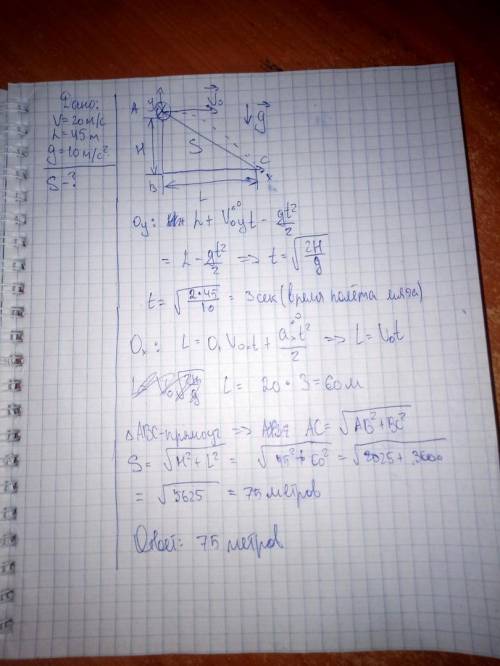 Дано:
V=20м/с
L=45м
g=10м/с²
S-?
y V₀ g
A
H S
C
B x
L
Oy: L + V₀yt - gt²/2
= L - gt²/2 => t = √(2H/g)
t = √(2•45/10) = 3сек (время полёта мяча)
Ox: L = 0, V₀xt + aₓt²/2 => L = V₀t
L = 20 • 3 = 60м
△ABC-прямоуг => AC = √(AB² + BC²)
S = √(H² + L²) = √(45² + 60²) = √(2025 + 3600)
= √5625 = 75 метров
Ответ: 75 метров